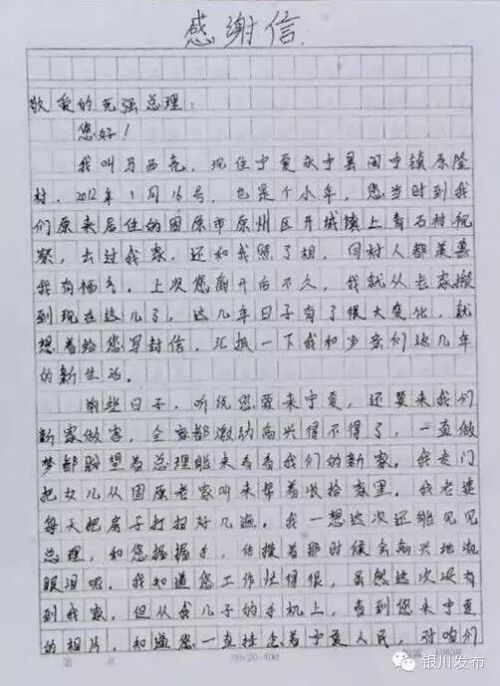 感谢信
敬爱的克强总理：
您好！
我叫马西克，现住宁夏永宁县闽宁镇原隆
村，2012年1月16号，也是个小年，您当时到我
们原来居住的固原市原州区开城镇上青石村视
察，去过我家，还和我照了相，同村人都羡慕
我有福气。上次您离开后不久，我就从老家搬
到现在这儿了，这几年日子有了很大变化，就
想着给您写封信，汇报一下我和乡亲们这几年
的新生活。
前些日子，听说您要来宁夏，还要来我们
新家做客，全家都激动高兴得不得了，一直做
梦都盼望着总理能来看看我们的新家。我专门
把女儿从固原老家叫来帮着收拾家里。我老婆
每天把房子打扫好几遍。我一想这次还能见见
总理，和您握握手，估摸着那时候会高兴地流
眼泪呢。我知道您工作忙得很，虽然这次没有
到我家，但从我儿子的手机上，看到您来宁夏
的相片，知道您一直挂念着宁夏人民，对咱们
20×20=400
银川发布